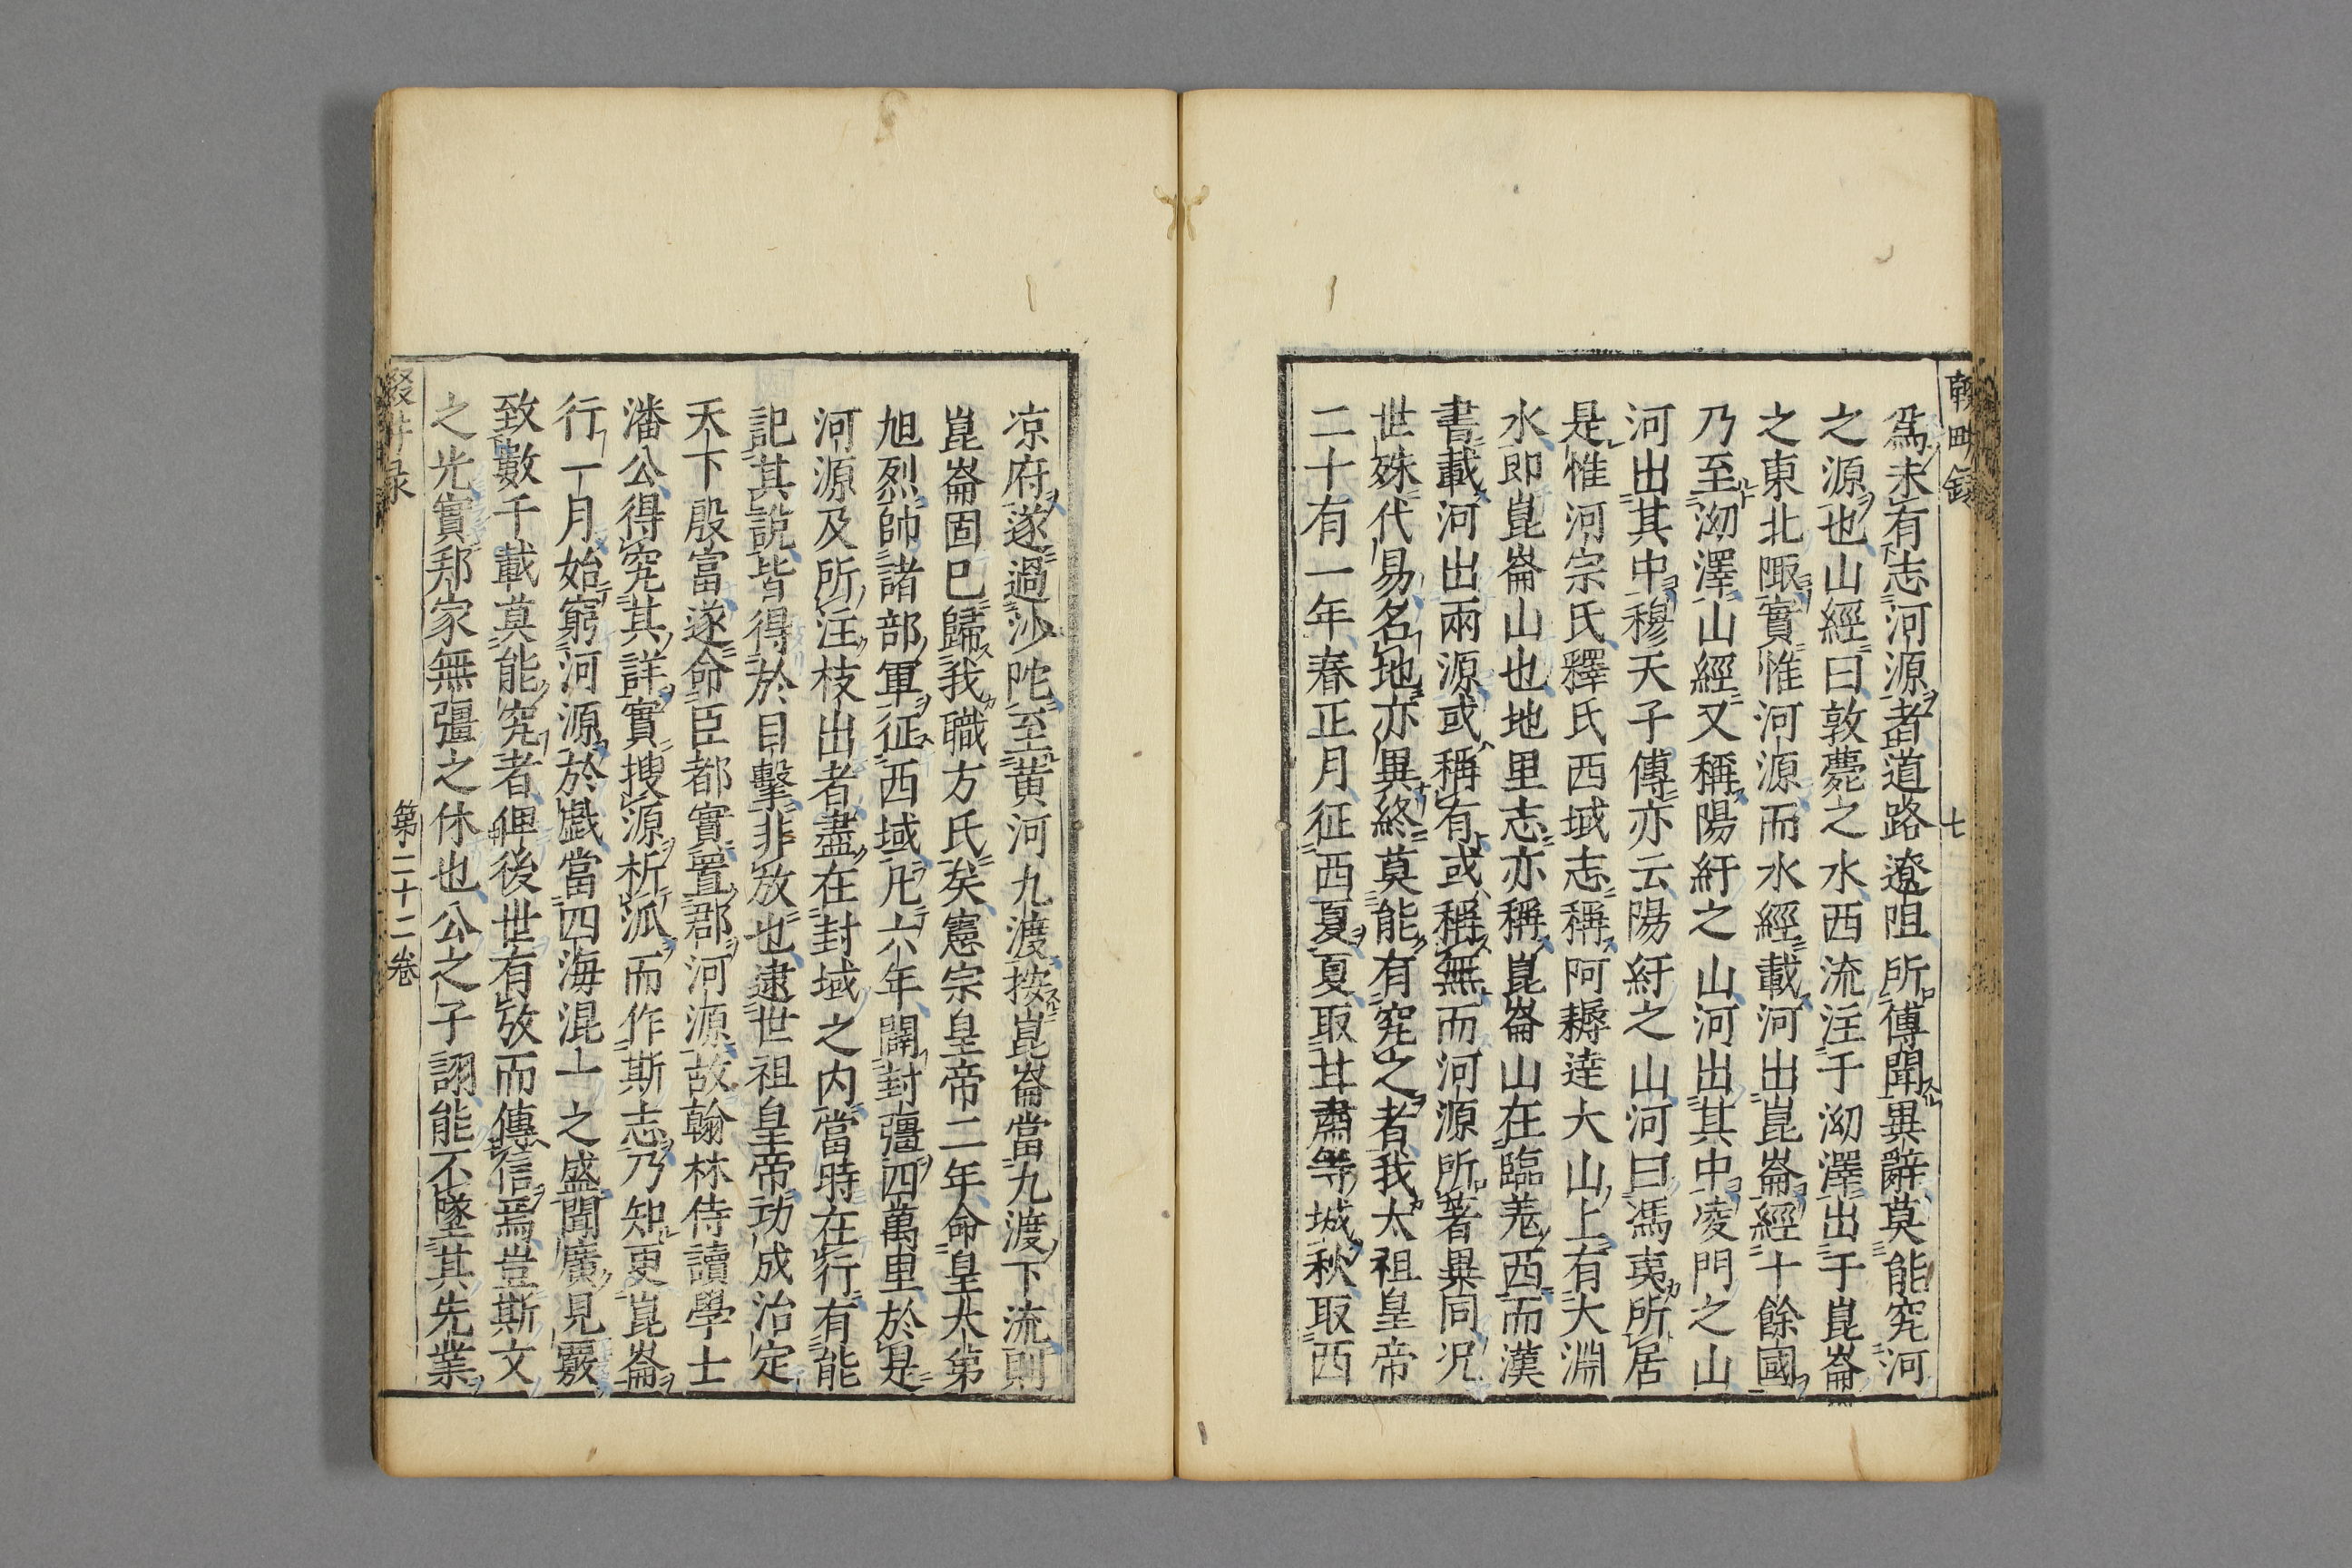 爲未有志河源者道路遼阻所傳聞異辭莫能究河
之源也山經曰敦薨之水西流注于泑澤出于崑崙
之東北陬實惟河源而水經載河出崑崙經十餘國
乃至泑澤山經又稱陽紆之山河出其中凌門之山
河出其中穆天子傳亦云陽紆之山河曰馮夷所居
是惟河宗氏釋氏西域志稱阿耨達大山上有大淵
水即崑崙山也地里志亦稱崑崙山在臨羌西而漢
書載河出兩源或稱有或稱無而河源所著異同況
世殊代易名地亦異終莫能有究之者我太祖皇帝
二十有一年春正月征西夏夏取甘肅等城秋取西
七
凉府遂過沙陀至黄河九渡按崑崙當九渡下流則
崑崙固已歸我職方氏矣憲宗皇帝二年命皇太弟
旭烈帥諸部軍征西域凡六年闢封彊四萬里於是
河源及所注枝出者盡在封域之内當時在行有能
記其說皆得於目擊非放也逮世祖皇帝功成治定
天下殷富遂命臣都實置郡河源故翰林侍讀學士
潘公得究其詳實搜源析派而作斯志乃知更崑崙
行一月始窮河源於戲當四海混一之盛聞廣見覈
致數千載莫能究者俾後世有攷而傳信焉豈斯文
之光實邦家無彊之休也公之子詡能不墜其先業
第二十二卷